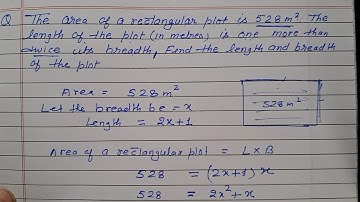 Q The area of a rectangular plot is 528 m². The
length of the plot (in metres) is one more than
twice its breadth, Find the length and breadth
of the plot
Area = 528 m²
Let the breadth be = x
Length = 2x+1
528 m²
Area of a rectangular plot = L×B
528 = (2x+1) x
528 = 2x²+x